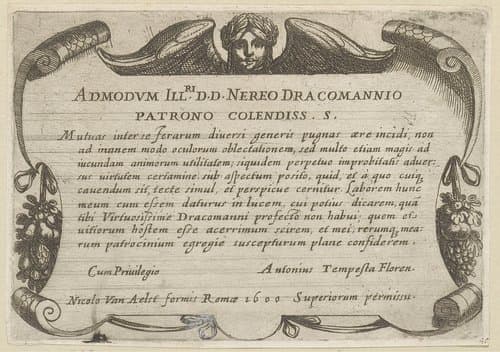 ADMODVM ILL.RI D.D. NEREO DRACOMANNIO
PATRONO COLENDISS. S.
Mutuas inter se ferarum diversi generis pugnas ære incidi, non
ad inanem modo oculorum oblectationem, sed multo etiam magis ad
iucundam animorum utilitatem; siquidem perpetuo improbitatis aduer,
sus virtutem certamine, sub aspectum posito, quid, et a quo cuiq,
cavendum sit, tecte simul, et perspicue cernitur. Laborem hunc
meum cum essem daturus in lucem, cui potius dicarem, quã
tibi Virtuosissime Dracomanni profecto non habui; quem et
vitiorum hostem esse acerrimum scirem, et mei, rerumq, mea,
rum patrocinium egregie suscepturum plane considerem.
Cum Privilegio Antonius Tempesta Floren.
Nicolo Van Aelst formis Romæ 1600 Superiorum permissu.